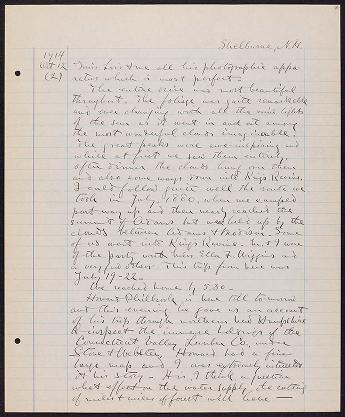 Shelburne, N.H.
1914
Oct 12
(2)
Lois & me all his photographic appa
ratus which is most perfect.
The entire drive was most beautiful
throughout. The foliage was quite remarkable
and ever changing with all the wind lights
of the sun as it went in and out among
the most wonderful clouds imaginable!
The great peaks were awe-inspiring and
while at first we saw them entirely,
after dinner the clouds hung on them
and also some ways down into Kings Ravine.
I could follow quite well the route we
took in July, 1880, when we camped
part way up and then nearly reached the
summit of Adams but held up by the
clouds between Adams & Madison. Some
of us went into Kings Ravine. Mr. S & I were
of the party with Miss Ella F. Wiggins and
a very few others. This trip from here was
July 19-22.
We reached home by 5.30.
Howard Philbrook is here till tomorrow
and this evening he gave us an account
of his trip through northern New Hampshire
to inspect the immense holdings of the
Connecticut Valley Lumber Co., under
Stone & Webster. Howard had a fine
large map and I was extremely interested
in his story. It is I think a question
what effect on the water supply, the cutting
of miles & miles of forest will have —